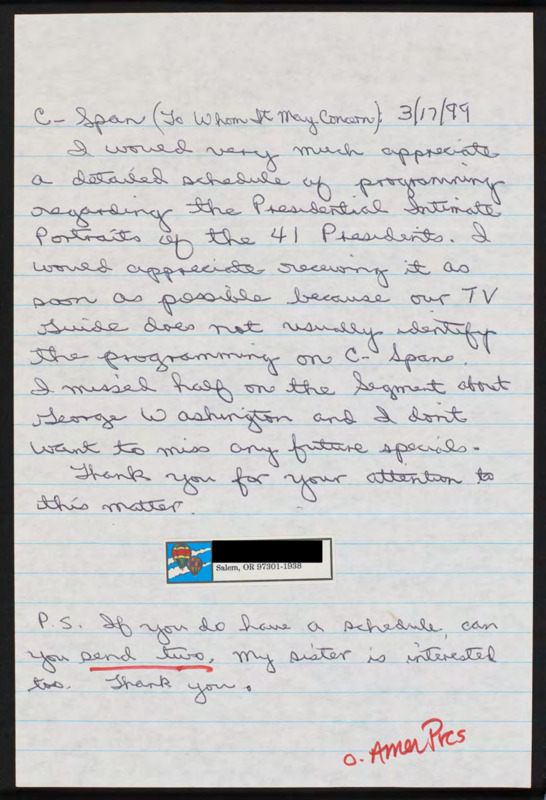 C-Span (To Whom It May Concern): 3/17/99
I would very much appreciate
a detailed schedule of programming
regarding the Presidential Intimate
Portraits of the 41 Presidents. I
would appreciate receiving it as
soon as possible because our TV
Guide does not usually identify
the programming on C-Span.
I missed half on the segment about
George Washington and I don't
want to miss any future specials.
Thank you for your attention to
this matter.
Salem, OR 97301-1938
P.S. If you do have a schedule, can
you send two, my sister is interested
too. Thank you.
O. Amer Pres